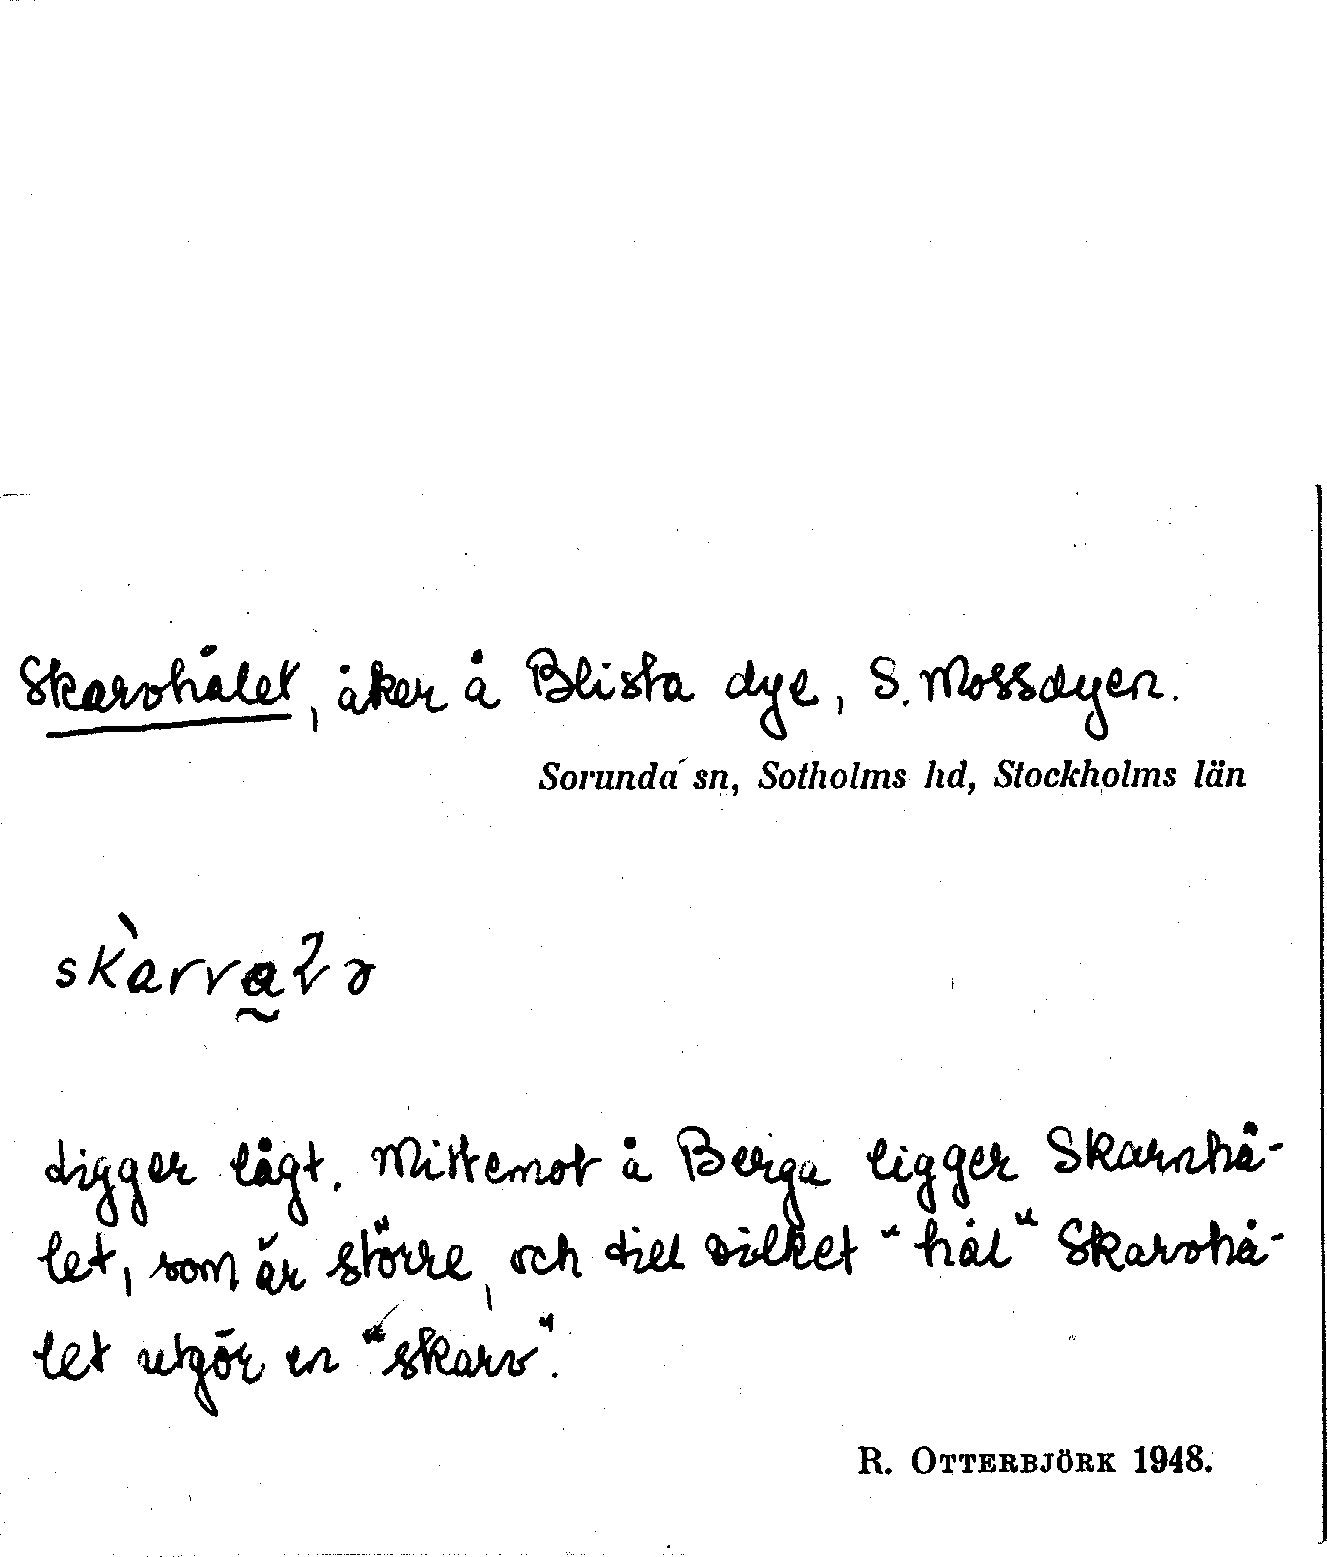 Skarvhålet, åker å Blista dye, S. Mossdyen.
Sorunda sn, Sotholms hd, Stockholms län
skàrvḁlə
Ligger lågt. Mittemot å Berga ligger Skarnhå-
let, som är större, och till vilket "hål" Skarvhå-
let utgör en "skarv".
R. OTTERBJÖRK 1948.